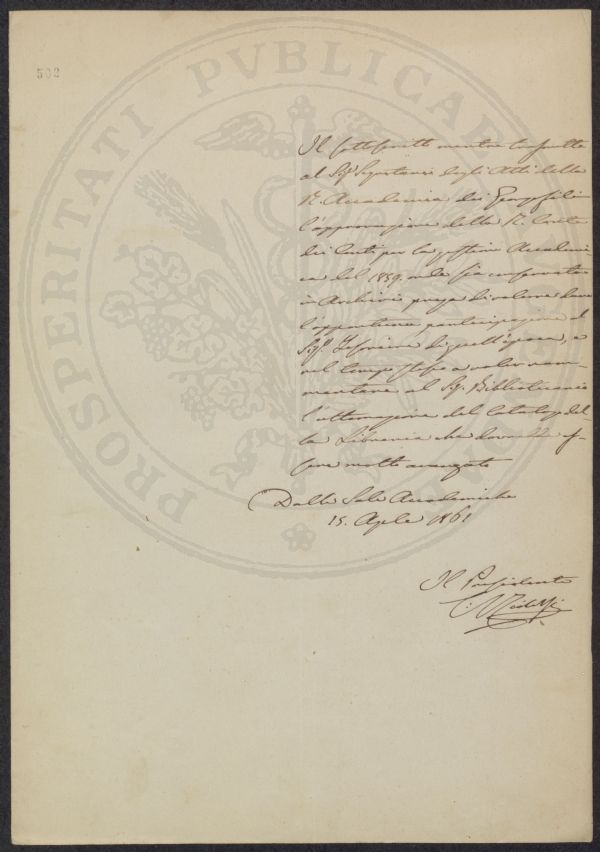 502
PROSPERITATI PVBLICAE AVGENDAE
Il sottoscritto mentre trasmette
al Sig.r Segretario degli Atti della
R. Accademia dei Georgofili
l'approvazione della R. Corte
dei Conti per la gestione Accademi-
ca del 1859. onde sia conservata
in Archivio, prega di volerne dare
l'opportuna partecipazione al
Sig.r Tesoriere di quell'epoca, e
nel tempo stesso a voler ram-
mentare al Sig.r Bibliotecario
l'ultimazione del Catalogo del-
la Libreria che dovrebbe es-
sere molto avanzato
Dalle Sale Accademiche
15. Aprile 1861
Il Presidente
C. Ridolfi